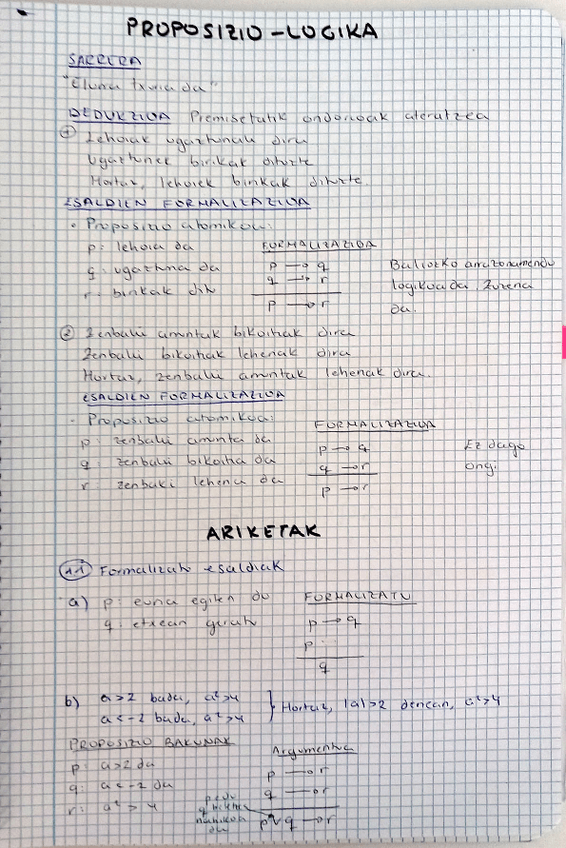 PROPOSIZIO-LOGIKA
SARRERA
"Elurra txuria da"
DEDUKZIOA Premisetatik ondorioak ateratzea
① Lehoiak ugaztunak dira
Ugaztunek birikak dituzte
Hortaz, lehoiek birikak dituzte.
ESALDIEN FORMALIZAZIOA
• Proposizio atomikoa:
p: lehoia da
q: ugaztuna da
r: birikak ditu
FORMALIZAZIOA
p → q
q → r
p → r
Baliozko arrazonamendu
logikoa da. Zuzena
da.
② Zenbaki arruntak bikoitiak dira
Zenbaki bikoitiak lehenak dira
Hortaz, zenbaki arruntak lehenak dira.
ESALDIEN FORMALIZAZIOA
• Proposizio atomikoa:
p: zenbaki arrunta da
q: zenbaki bikoitia da
r: zenbaki lehena da
FORMALIZAZIOA
p → q
q → r
p → r
Ez dago
ongi.
ARIKETAK
1.1 Formalizatu esaldiak
a) p: euria egiten du
q: etxean geratu
FORMALIZATU
p → q
p
q
b) a>2 bada, a²>4
a<-2 bada, a²>4
} Hortaz, |a|>2 denean, a²>4
PROPOSIZIO BAKUNAK
p: a>2 da
q: a<-2 da
r: a²>4
Argumentua
p → r
q → r
p∨q → r
p edo
q
nahikoa
da